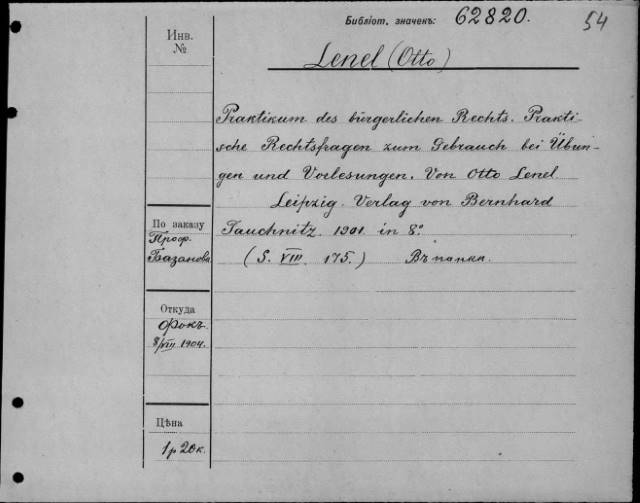 Библіот. значекъ: 62820. 54
Инв.
№
Lenel (Otto)
Praktikum des bürgerlichen Rechts. Prakti-
sche Rechtsfragen zum Gebrauch bei Übun-
gen und Vorlesungen. Von Otto Lenel
Leipzig. Verlag von Bernhard
Tauchnitz 1901 in 8º
(S. VIII. 175.) Въ папки.
По заказу
Проф.
Базанова
Откуда
Фокъ.
8/VIII 1904.
Цѣна
1 р 20 к.